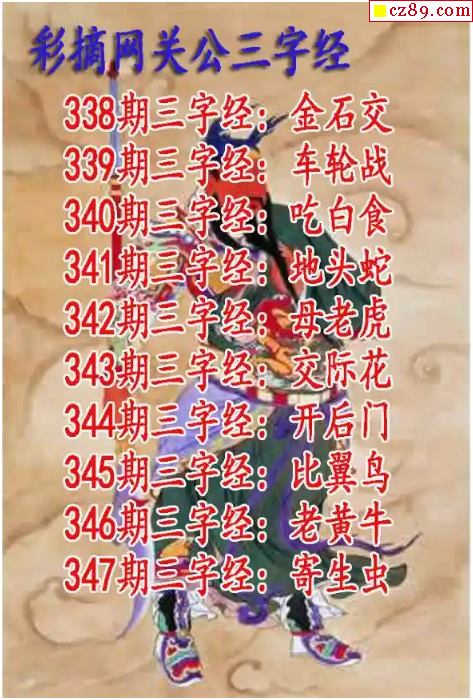 cz89.com
彩摘网关公三字经
338期三字经：金石交
339期三字经：车轮战
340期三字经：吃白食
341期三字经：地头蛇
342期三字经：母老虎
343期三字经：交际花
344期三字经：开后门
345期三字经：比翼鸟
346期三字经：老黄牛
347期三字经：寄生虫